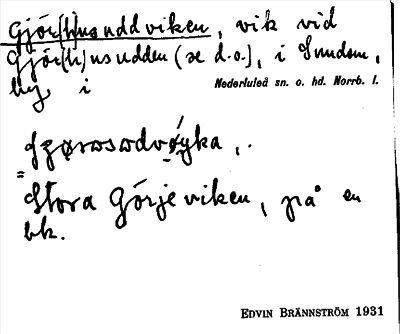 Gjör[h]usuddviken, vik vid
Gjör[h]usudden (se d.o.), i Sundom,
by, i Nederluleå sn. o. hd. Norrb. l.
= Stora Görjeviken, på en
bk.
EDVIN BRÄNNSTRÖM 1931